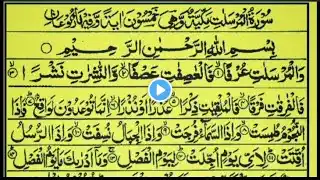 سُوْرَةُ الْمُرْسَلٰتِ مَكِّيَّةٌ وَّهِيَ خَمْسُوْنَ اٰيَةً وَّفِيْهَا رُكُوْعَانِ
بِسْمِ اللّٰهِ الرَّحْمٰنِ الرَّحِيْمِ
وَالْمُرْسَلٰتِ عُرْفًا ۙ فَالْعٰصِفٰتِ عَصْفًا ۙ وَّالنّٰشِرٰتِ نَشْرًا ۙ
فَالْفٰرِقٰتِ فَرْقًا ۙ فَالْمُلْقِيٰتِ ذِكْرًا ۙ عُذْرًا اَوْ نُذْرًا ۙ اِنَّمَا تُوْعَدُوْنَ لَوَاقِعٌ ؕ فَاِذَا
النُّجُوْمُ طُمِسَتْ ۙ وَاِذَا السَّمَآءُ فُرِجَتْ ۙ وَاِذَا الْجِبَالُ نُسِفَتْ ۙ وَاِذَا الرُّسُلُ
اُقِّتَتْ ؕ لِاَيِّ يَوْمٍ اُجِّلَتْ ؕ لِيَوْمِ الْفَصْلِ ۚ وَمَآ اَدْرٰىكَ مَا يَوْمُ الْفَصْلِ ؕ